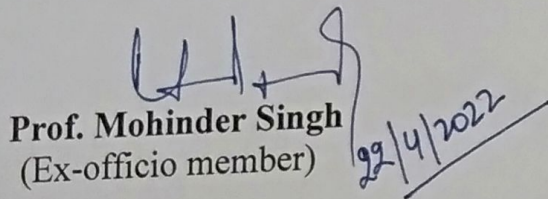 Prof. Mohinder Singh
(Ex-officio member)
22/4/2022